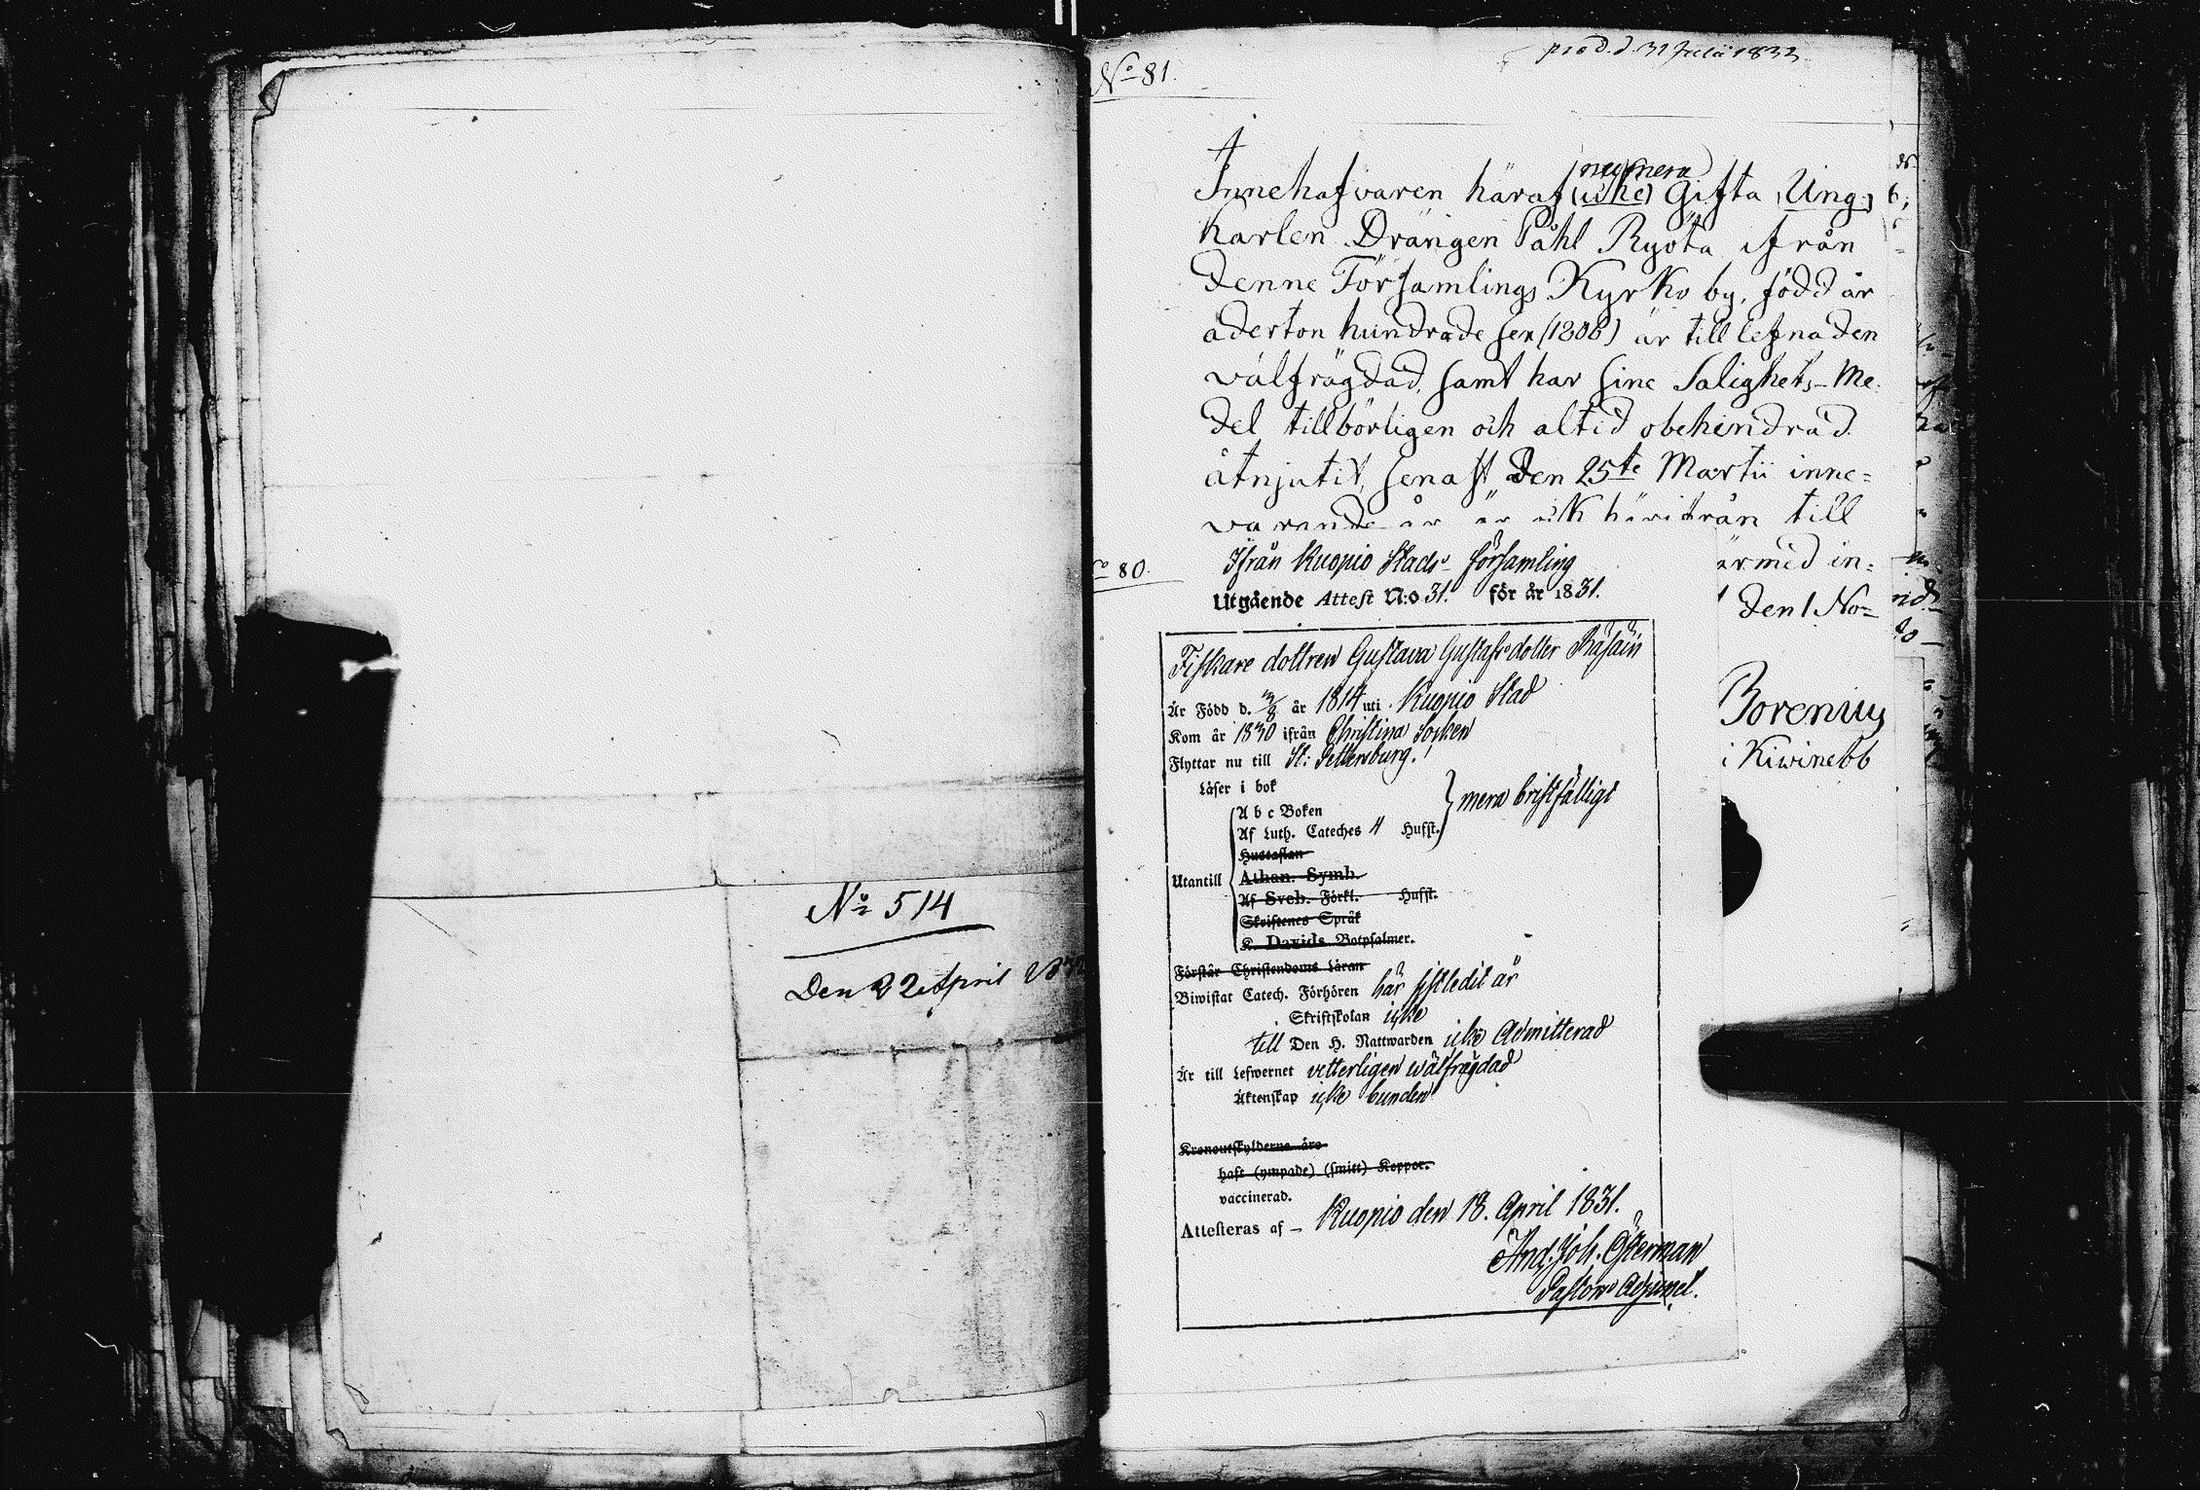 No 514
Den 22 April
No 81.
prod. d. 31 Julii 1833
numera
Innehafvaren häraf (icke) Gifta, Ung-
karlen Drängen Påhl Ryötä ifrån
denne Församlings Kyrko by, född år
aderton hundrade sex (1806) är till lefnaden
välfrägdad, samt har sine Salighets-Me-
del tillbörligen och altid obehindrad
åtnjutit, senast den 25te Martii inne=
varande år är och härifrån till
ärmed in=
den 1 No=
Borenius
i Kiwinebb
No 80.
Ifrån Kuopio Stads Församling
Utgående Attest N:o 31. för år 1831.
Fiskare dottren Gustava Gustafsdotter Räsäin
Är Född d. år 1814 uti Kuopio Stad
Kom år 1830 ifrån Christina Socken
Flyttar nu till St: Pettersburg.
Läser i bok
A b c Boken
Af Luth. Cateches 4 Hufst. mera bristfälligt
Hustaflan
Utantill
Athan. Symb.
Af Sveb. Förkl. Hufst.
Skriftenes Språk
K. Davids Botpsalmer.
Förstår Christendoms Läran
Biwistat Catech. Förhören här sistledit år
Skriftskolan icke
till Den H. Nattwarden icke Admitterad
Är till Lefwernet vitterligen wälfrägdad
Äktenskap icke bunden
Kronoutskylderne äro
haft (ympade) (smitt) Koppor.
vaccinerad.
Attesteras af – Kuopio den 18. April 1831.
And. Joh. Österman
Pastors Adjunct.